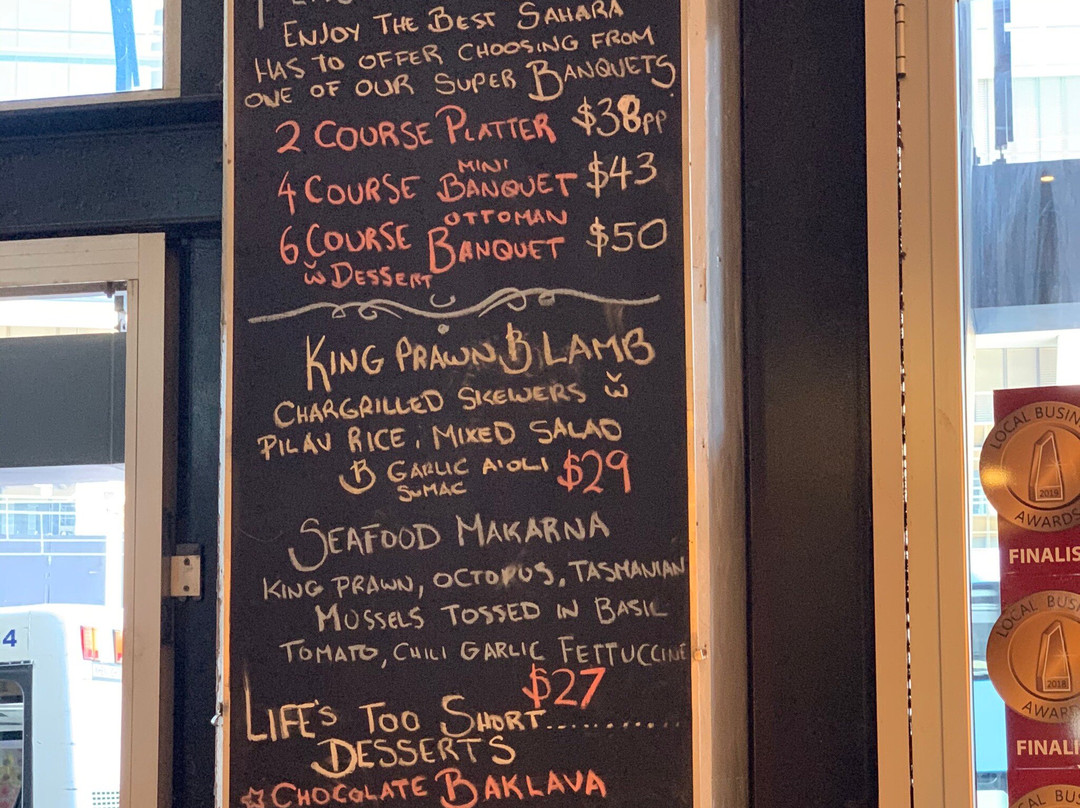 ENJOY THE BEST SAHARA
HAS TO OFFER CHOOSING FROM
ONE OF OUR SUPER BANQUETS
2 COURSE PLATTER $38PP
4 COURSE MINI BANQUET $43
6 COURSE OTTOMAN BANQUET $50
W DESSERT
KING PRAWN & LAMB
CHARGRILLED SKEWERS W
PILAV RICE, MIXED SALAD
& GARLIC AIOLI $29
SUMAC
SEAFOOD MAKARNA
KING PRAWN, OCTOPUS, TASMANIAN
MUSSELS TOSSED IN BASIL
TOMATO, CHILI GARLIC FETTUCCINE
$27
LIFE'S TOO SHORT...........
DESSERTS
☆ CHOCOLATE BAKLAVA
4
LOCAL BUSIN
2019
AWARDS
FINALIS
LOCAL BUSI
2018
AWARD
FINALI
AL BU